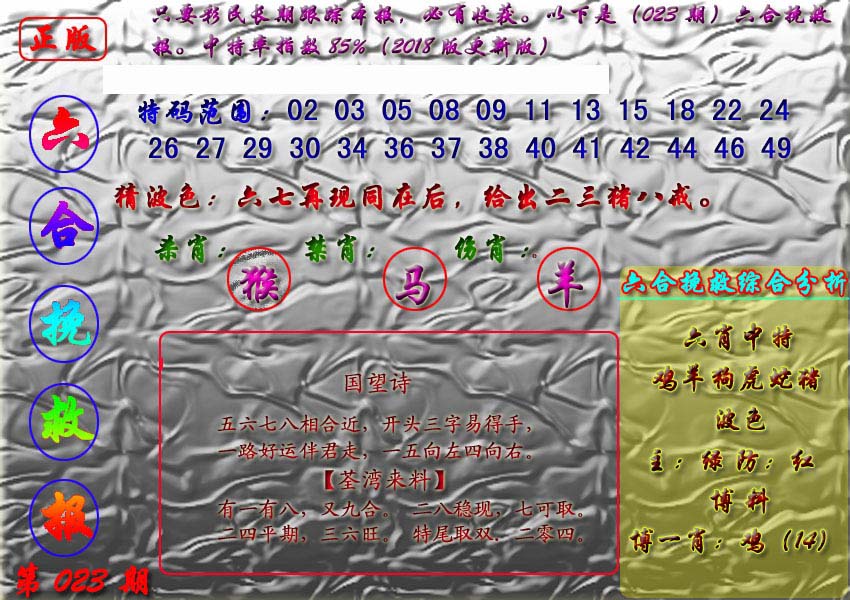 正版
只要彩民长期跟踪本报，必有收获。以下是（023期）六合挽救
报。中特率指数85%（2018版更新版）
六合挽救报
特码范围：02 03 05 08 09 11 13 15 18 22 24
26 27 29 30 34 36 37 38 40 41 42 44 46 49
猜波色：六七再现同在后，给出二三猪八戒。
杀肖：猴 禁肖：马 伤肖：羊
国望诗
五六七八相合近，开头三字易得手，
一路好运伴君走，一五向左四向右。
【荃湾来料】
有一有八，又九合。 二八稳现，七可取。
二四平期，三六旺。 特尾取双．二零四。
六合挽救综合分析
六肖中特
鸡羊狗虎蛇猪
波色
主：绿防：红
博料
博一肖：鸡（14）
第023期